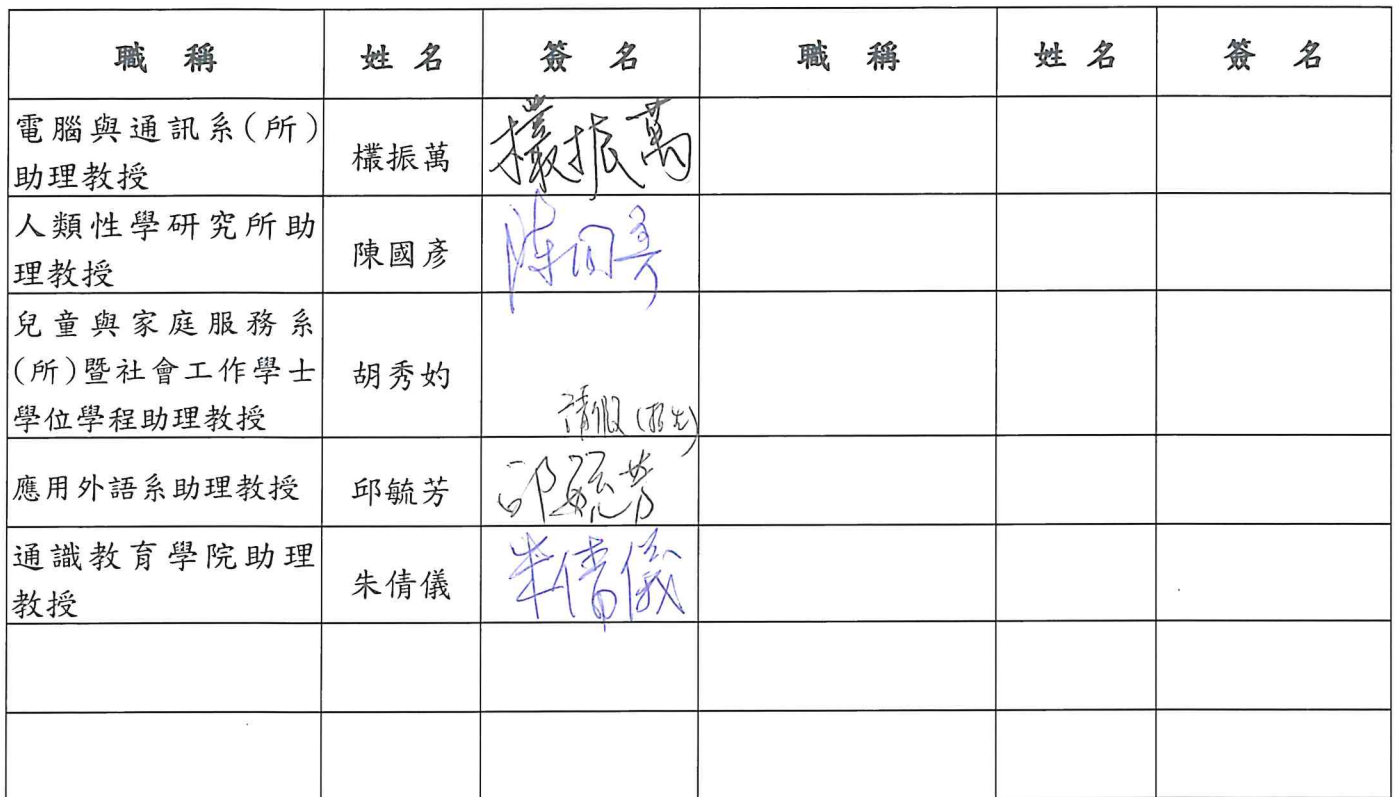 職稱 姓名 簽名 職稱 姓名 簽名
電腦與通訊系(所)
助理教授
欉振萬
欉振萬
人類性學研究所助
理教授
陳國彥
陳国彥
兒童與家庭服務系
(所)暨社會工作學士
學位學程助理教授
胡秀妁
請假
應用外語系助理教授
邱毓芳
邱毓芳
通識教育學院助理
教授
朱倩儀
朱倩儀